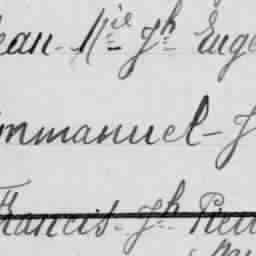 ean-Mie Jh Euge
mmanuel-J
Francis-Jh Pierr